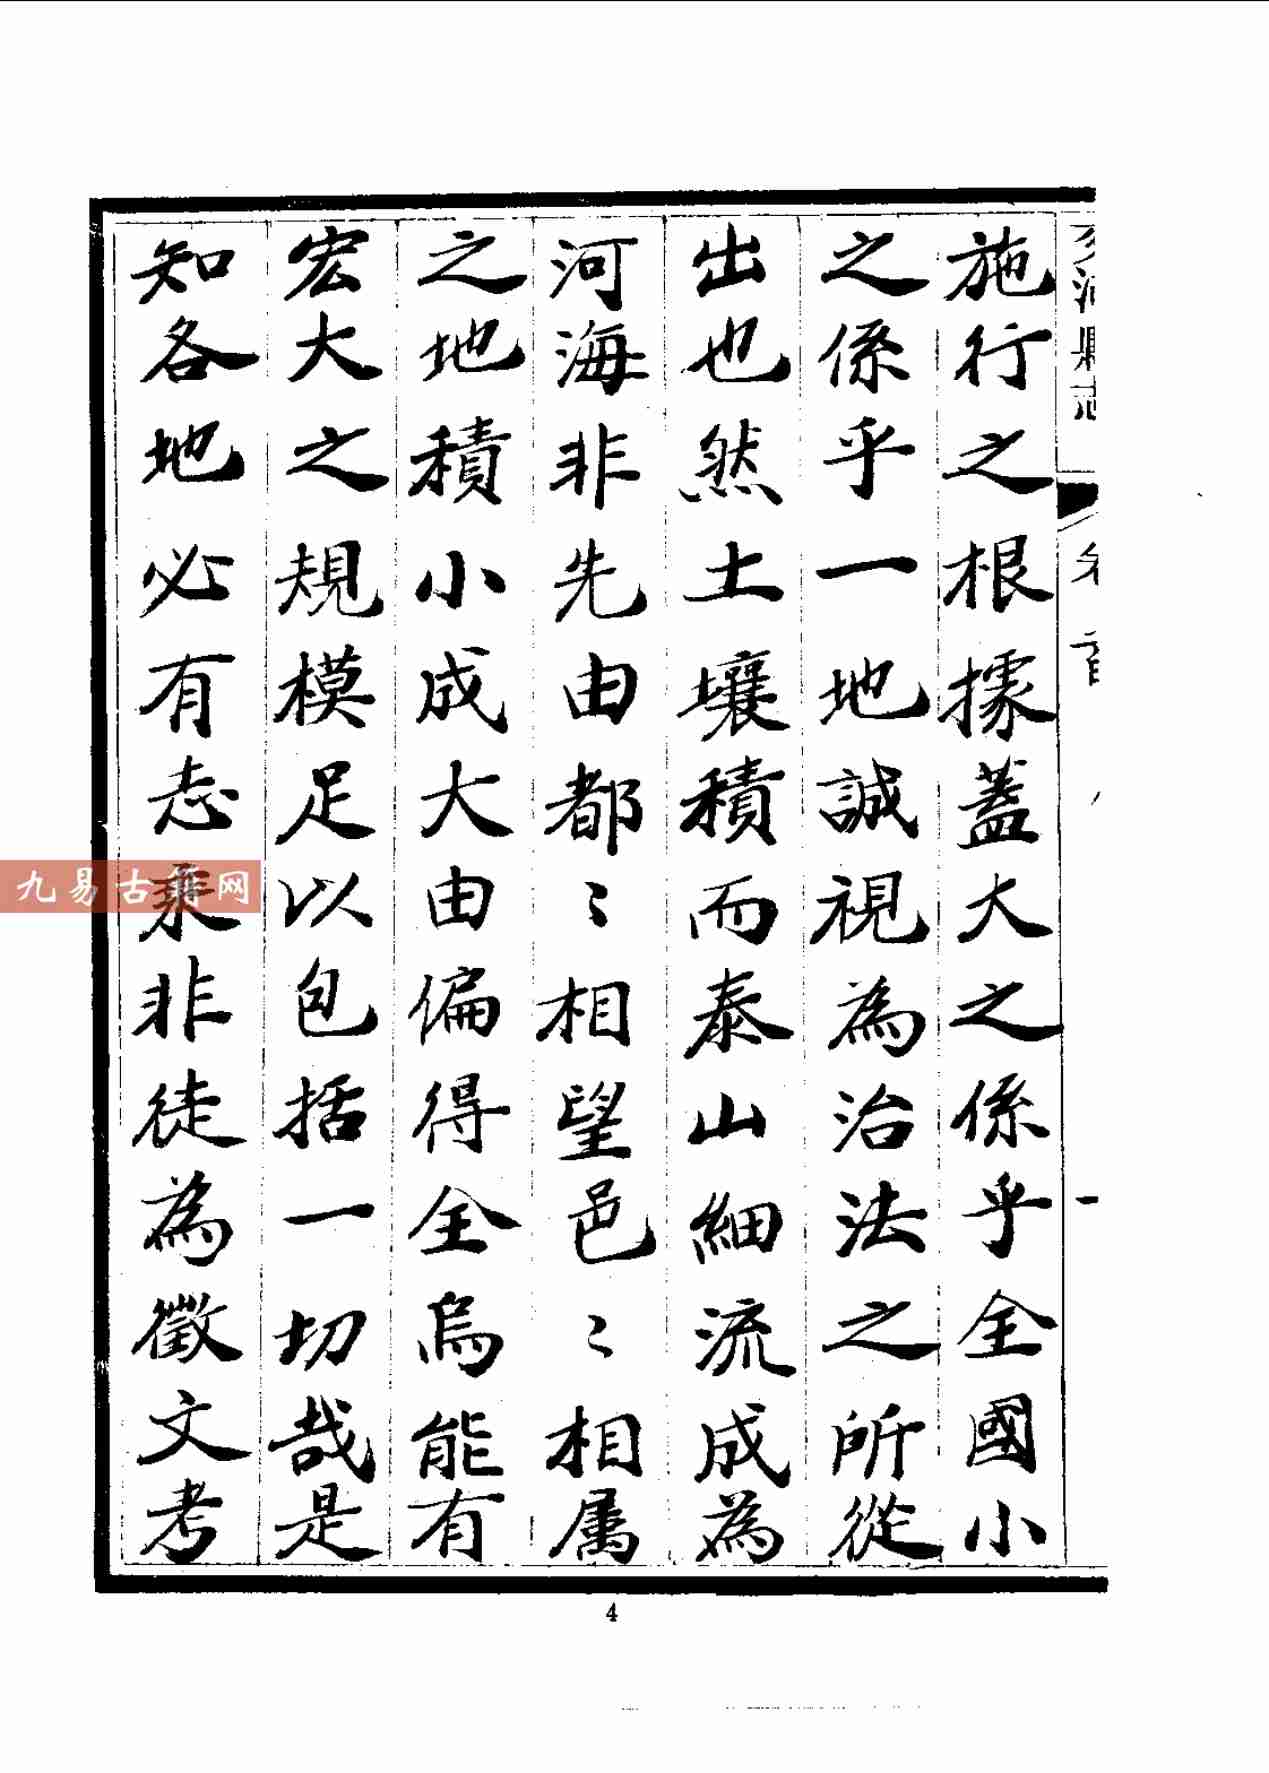 施行之根據蓋大之係乎全國小
之係乎一地誠視為治法之所從
出也然土壤積而泰山細流成為
河海非先由都〻相望邑〻相属
之地積小成大由偏得全烏能有
宏大之規模足以包括一切哉是
知各地必有志乘非徒為徵文考
九易古籍网
4